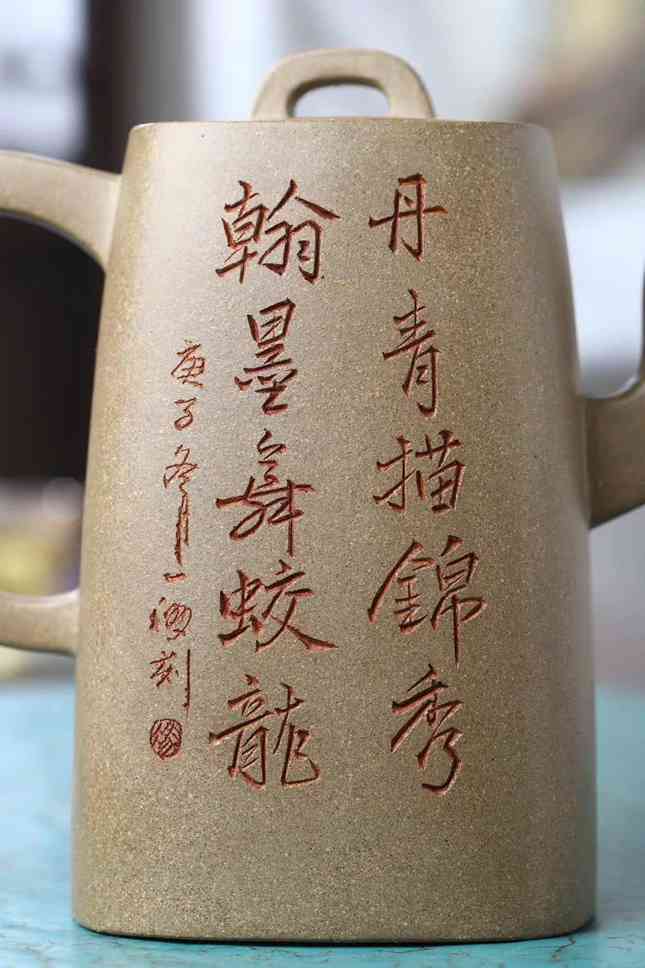 丹青描錦秀
翰墨舞蛟龍
庚子冬月一刻